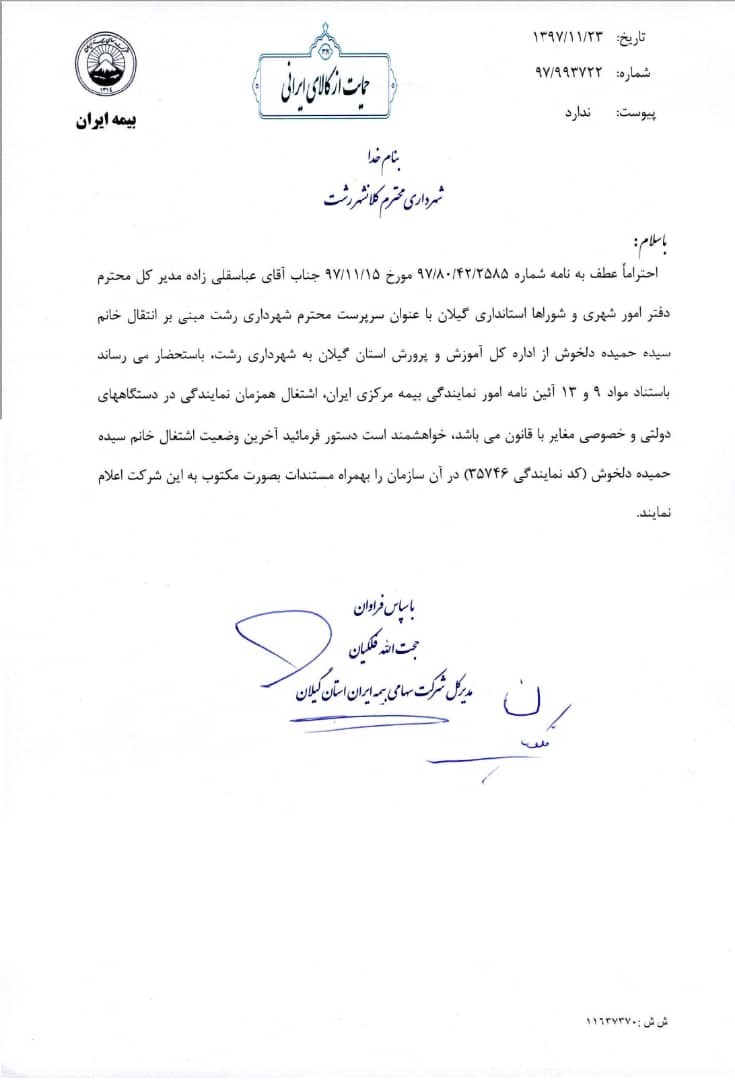 تاریخ: ۱۳۹۷/۱۱/۲۳
شماره: ۹۷/۹۹۳۷۲۲
پیوست: ندارد
حمایت از کالای ایرانی
۱۳۱۴
بیمه ایران
بنام خدا
شهرداری محترم کلانشهر رشت
باسلام:
احتراماً عطف به نامه شماره ۹۷/۸۰/۴۲/۲۵۸۵ مورخ ۹۷/۱۱/۱۵ جناب آقای عباسقلی زاده مدیر کل محترم
دفتر امور شهری و شوراها استانداری گیلان با عنوان سرپرست محترم شهرداری رشت مبنی بر انتقال خانم
سیده حمیده دلخوش از اداره کل آموزش و پرورش استان گیلان به شهرداری رشت، باستحضار می رساند
باستناد مواد ۹ و ۱۳ آئین نامه امور نمایندگی بیمه مرکزی ایران، اشتغال همزمان نمایندگی در دستگاههای
دولتی و خصوصی مغایر با قانون می باشد، خواهشمند است دستور فرمائید آخرین وضعیت اشتغال خانم سیده
حمیده دلخوش (کد نمایندگی ۳۵۷۴۶) در آن سازمان را بهمراه مستندات بصورت مکتوب به این شرکت اعلام
نمایند.
با سپاس فراوان
حجت الله فلکیان
مدیرکل شرکت سهامی بیمه ایران استان گیلان
ش ش :۱۱۶۳۷۳۷۰